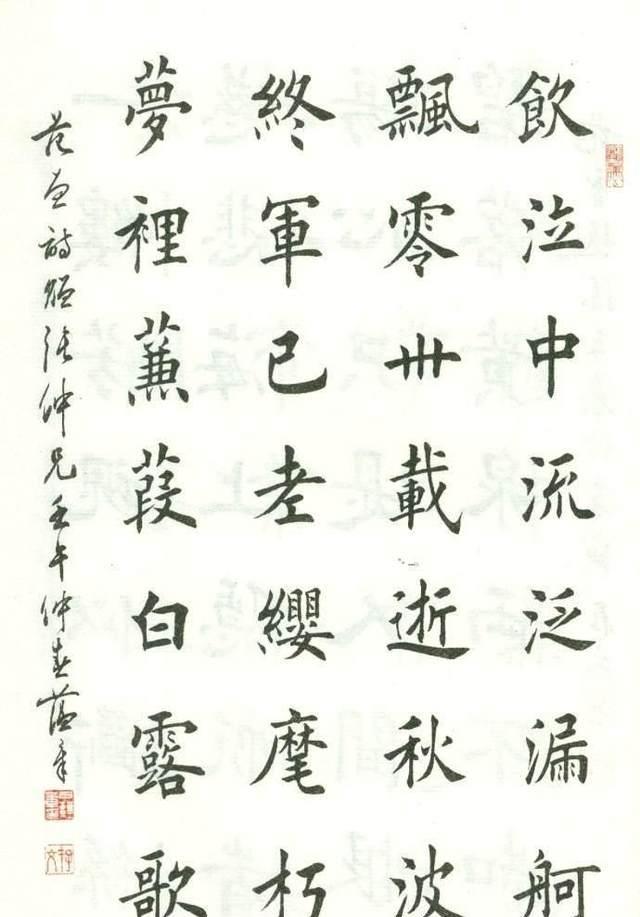 飲泣中流泛漏舸
飄零卅載逝秋波
終軍已老纓麾朽
夢裡蒹葭白露歌
范曾詩 張仲兄壬午仲春蘊章